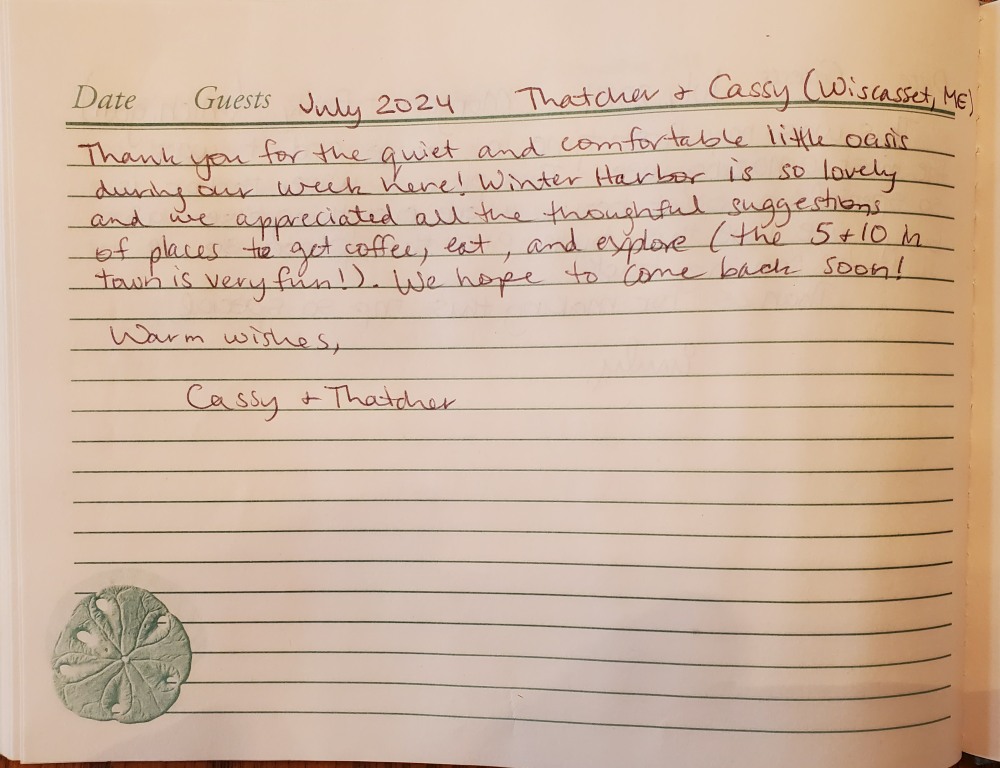 Date Guests July 2024 Thatcher + Cassy (Wiscasset, ME)
Thank you for the quiet and comfortable little oasis
during our week here! Winter Harbor is so lovely
and we appreciated all the thoughtful suggestions
of places to get coffee, eat, and explore (the 5+10 in
town is very fun!). We hope to come back soon!
Warm wishes,
Cassy + Thatcher